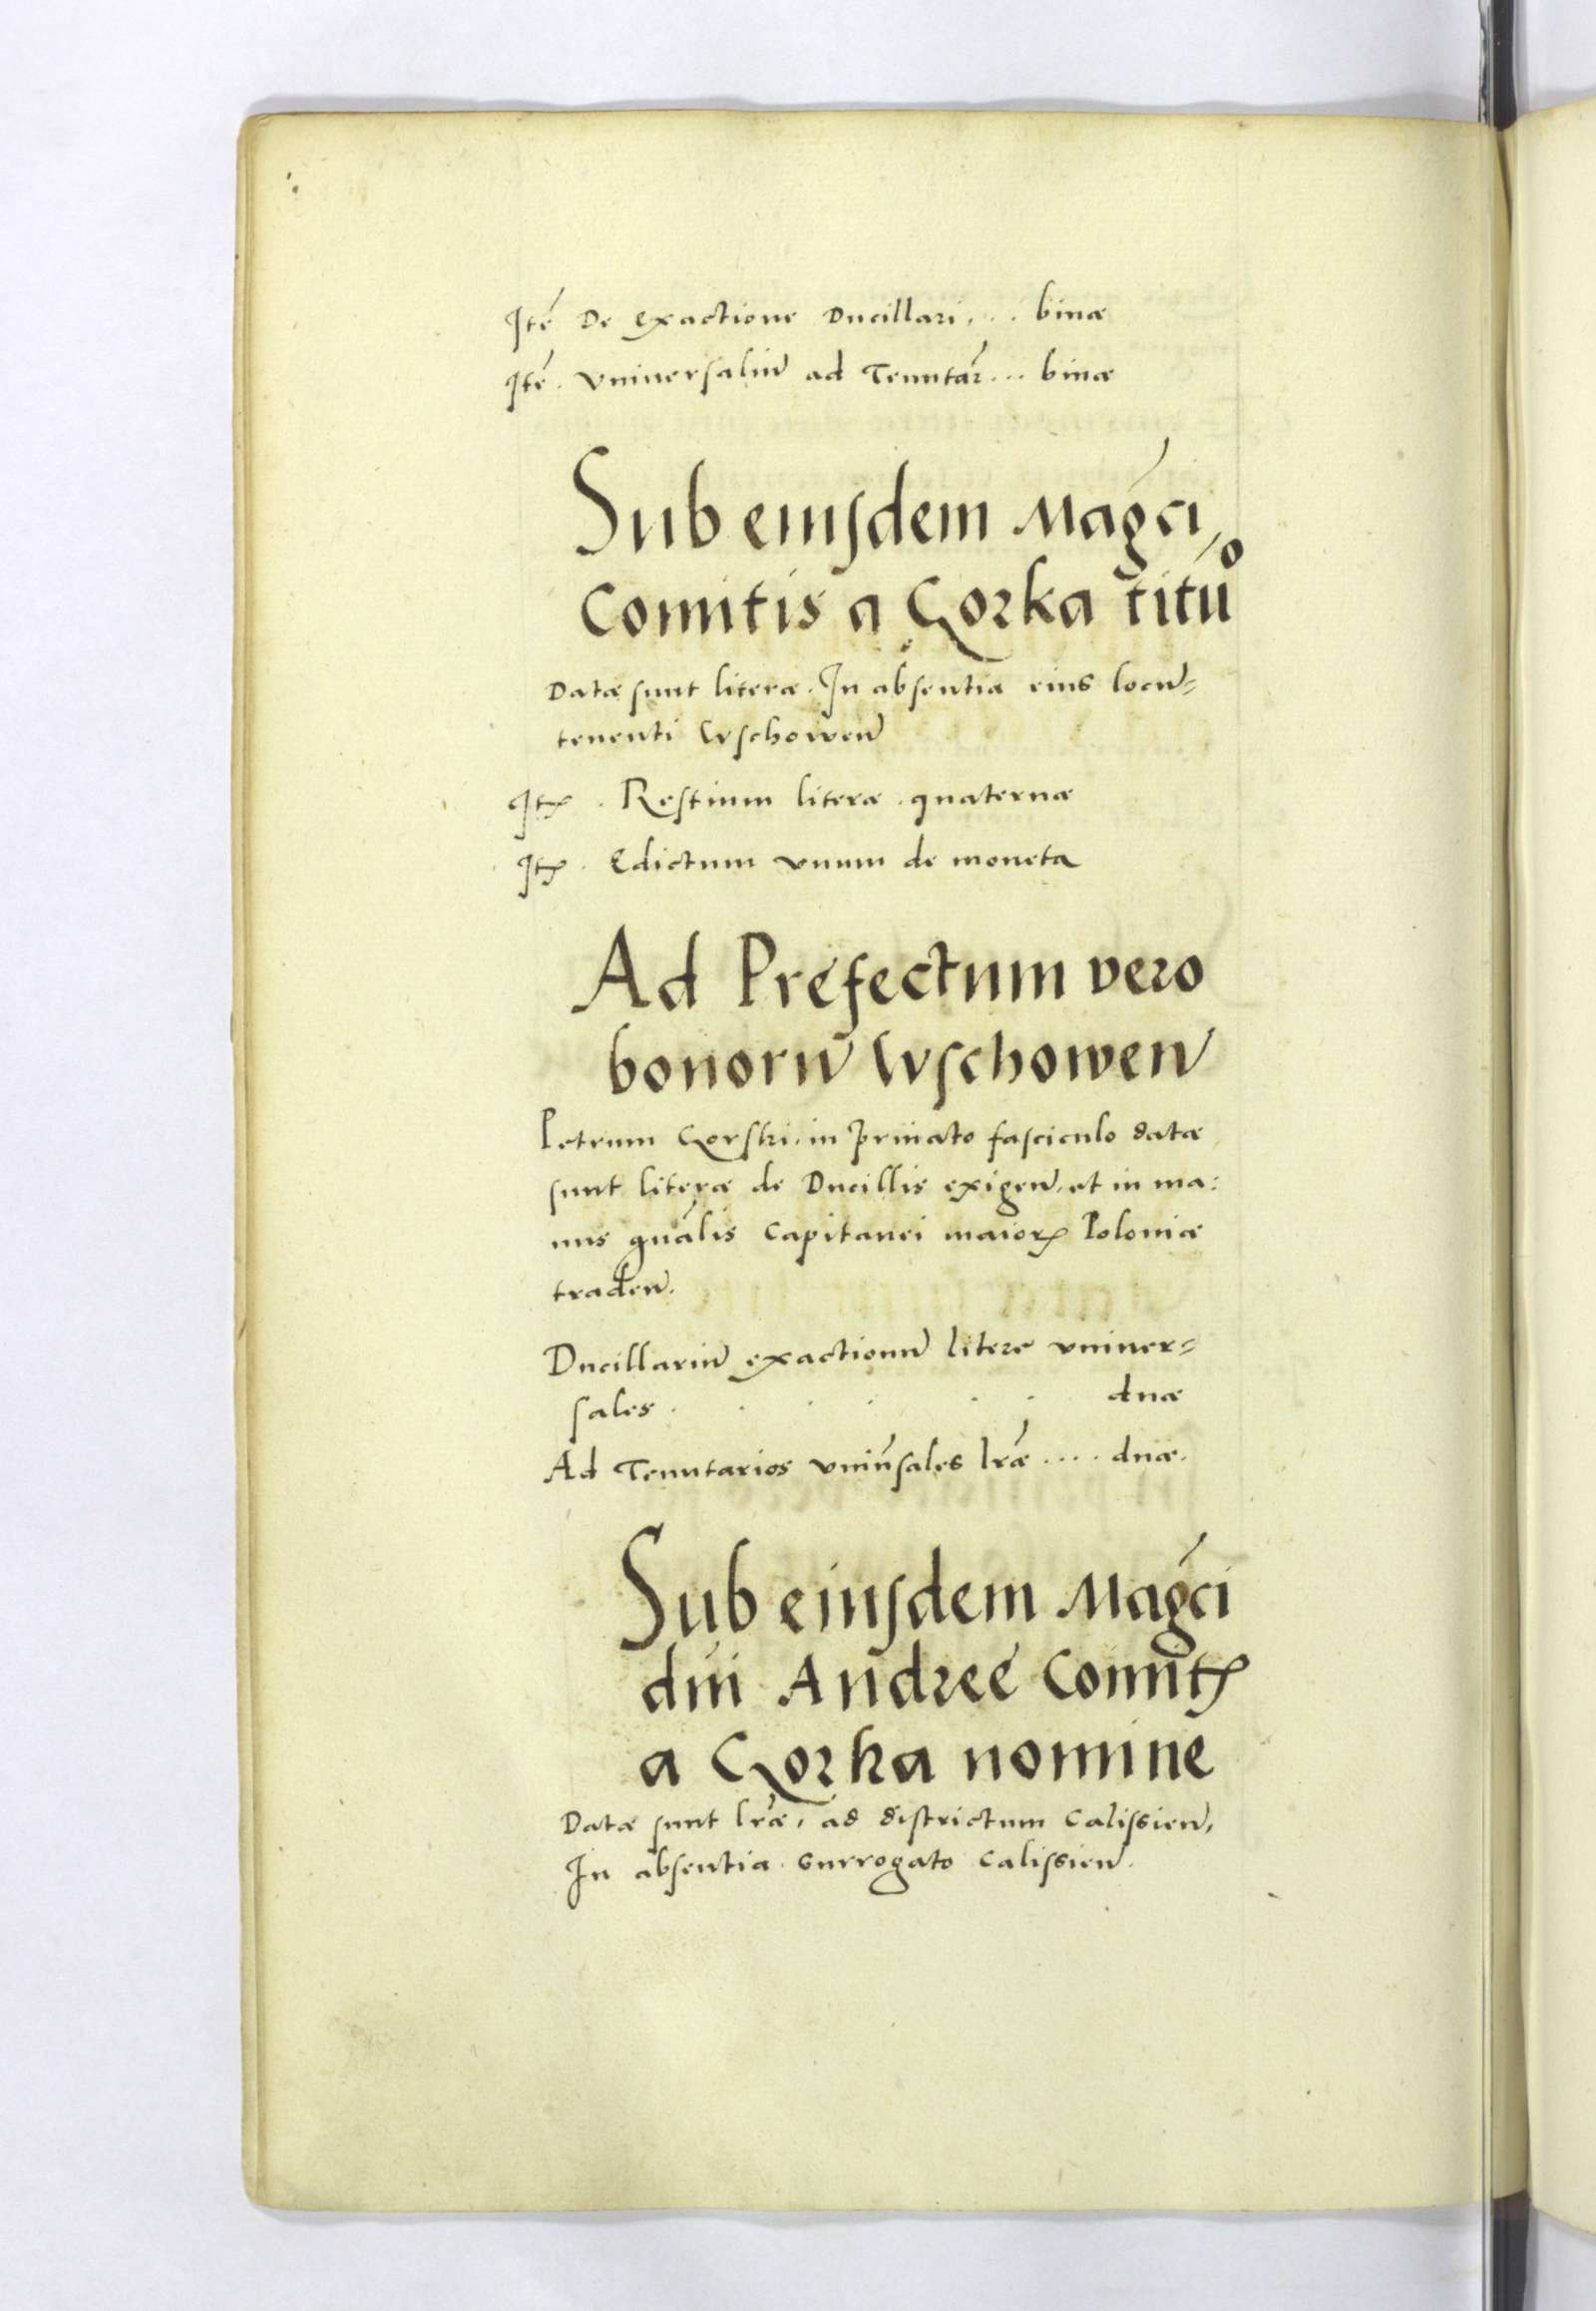 Itē De exactione Ducillari, . . . binæ
Itē. vniuersaliū ad Tenutar̄ . . . binæ
Sub eiusdem Magcí
Comitis a Gorka titu͞o
Datæ sunt literæ. In absentia eius locū=
tenenti Wschoweñ
Itꝫ. Restium literæ. quaternæ
Itꝫ. Edictum vnum de moneta
Ad Prefectum vero
bonorū Wschoweñ
Petrum Gorski. in priuato fasciculo datæ
sunt literæ de Ducillis exigeñ. et in ma:
nus gnālis Capitanei maiorꝫ Poloniæ
tradeñ.
Ducillariū exactionū litere vniuer=
sales . . . . . . duæ
Ad Tenutarios vniūsales lr̄æ . . . . duæ.
Sub eiusdem Magcí
dn̄i Andreę Comitꝫ
a Gorka nomine
Datæ sunt lr̄æ, ad districtum Calissieñ,
In absentia. surrogato Calissieñ.